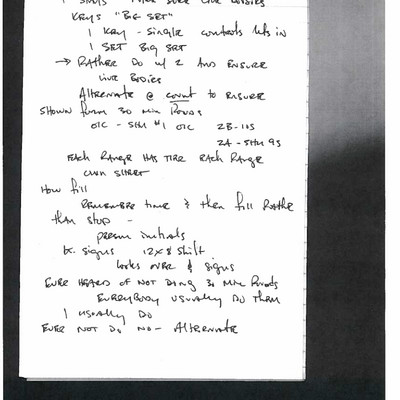 KEYS "BIG SET"
1 KEY - SINGLE CONTROLS
1 SET BIG SET
→ RATHER DO w/ 2 AND ENSURE
LIVE BODIES
ALTERNATE @ COUNT TO ENSURE
SHOWN FORM 30 MIN ROUNDS
OIC - SHU #1 OIC 2B-10S
2A - SHU 9S
EACH RANGE HAS EACH RANGE
OWN SHEET
HOW FILL
REMEMBER TIME & THEN FILL RATHER
THAN STOP -
INITIALS
EX. SIGNS 12X8 SHIFT
LOOKS OVER & SIGNS
EVER HEARD OF NOT DOING 30 MIN ROUNDS
EVERYBODY USUALLY DO THEM
I USUALLY DO
EVER NOT DO NO - ALTERNATE